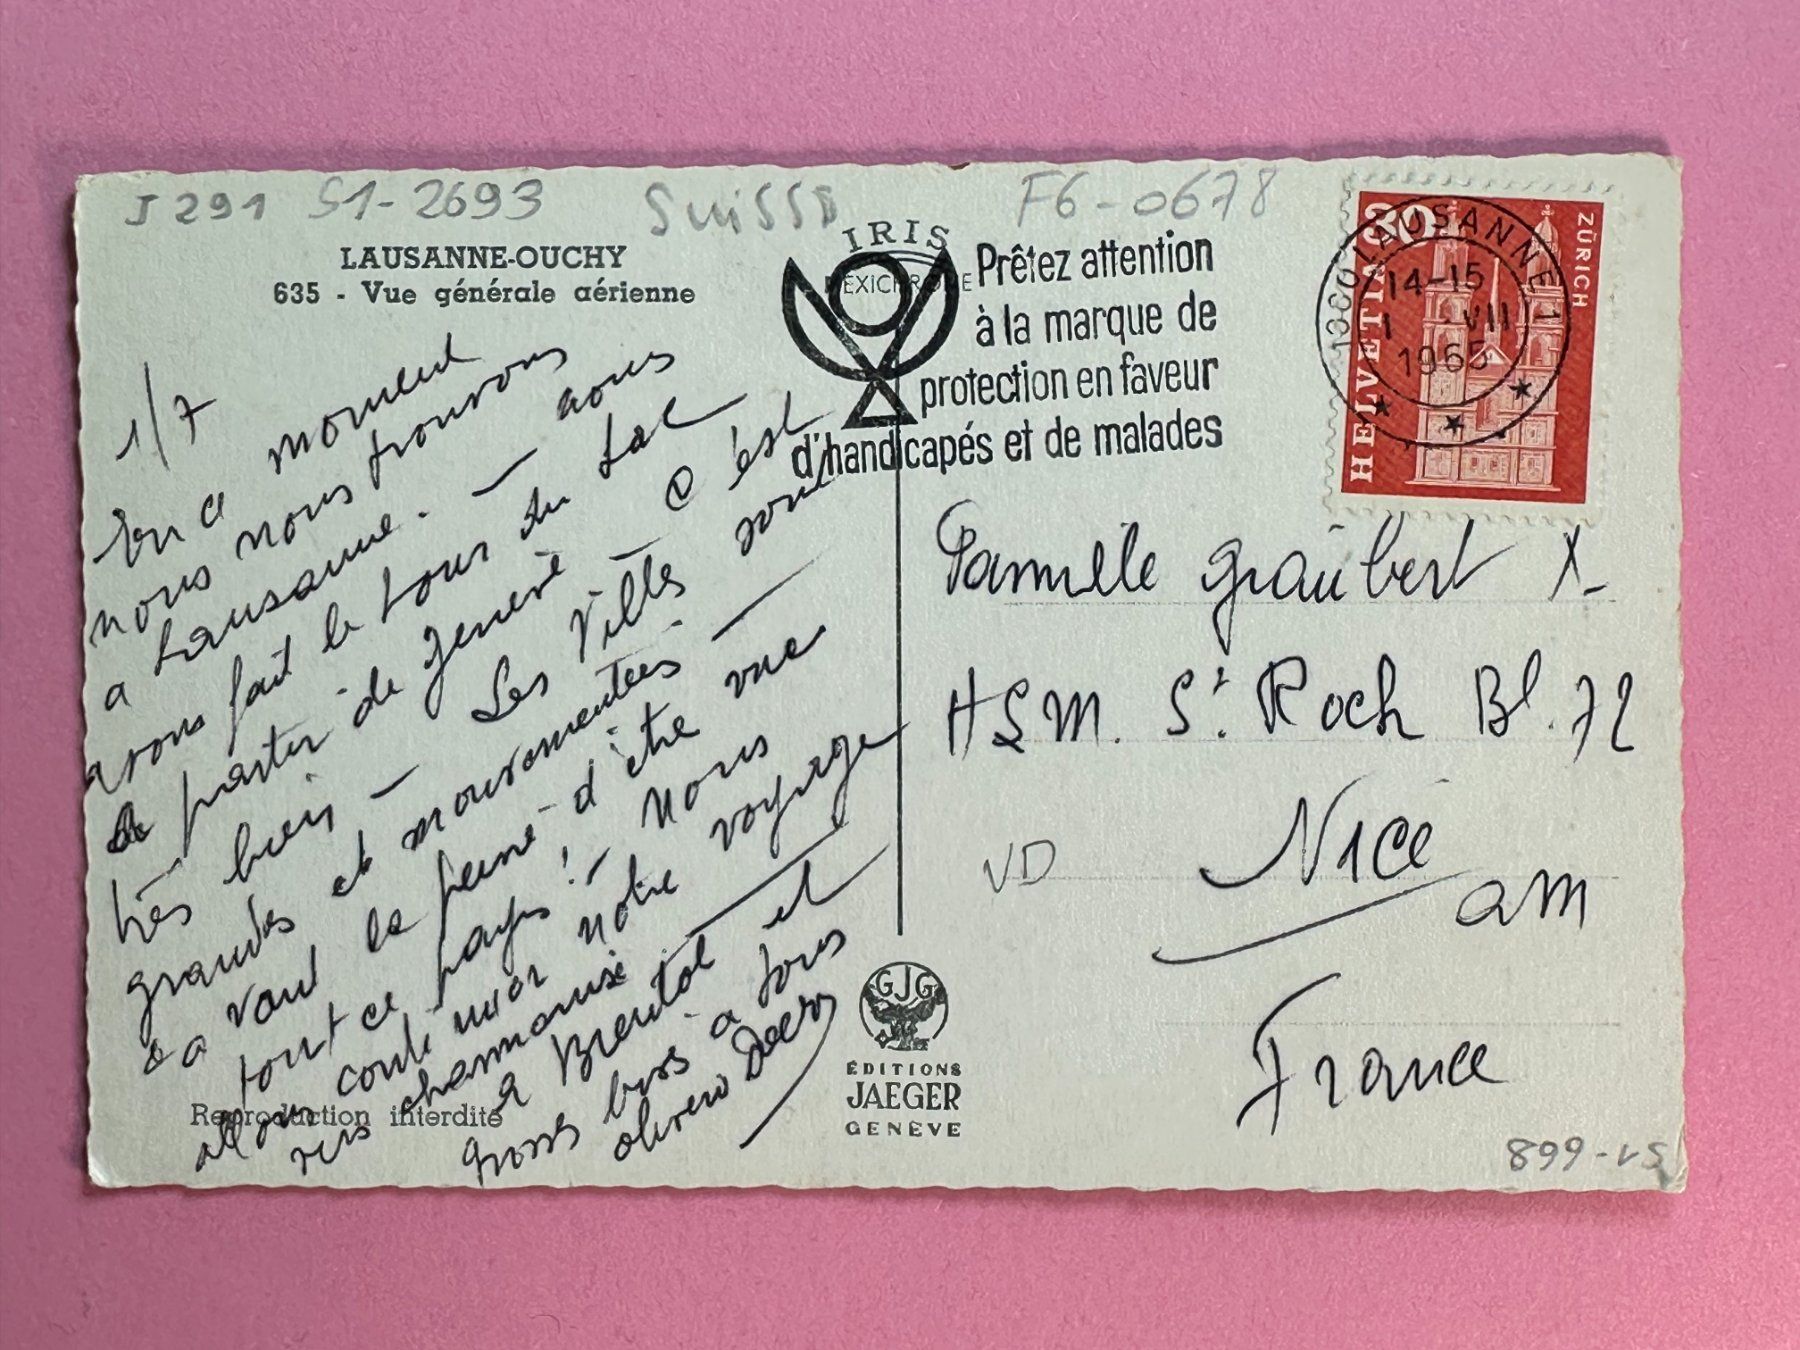 J 291 S1-2693 Suisse F6-0678
LAUSANNE-OUCHY
635 - Vue générale aérienne
IRIS
MEXICHROME
Prêtez attention
à la marque de
protection en faveur
d'handicapés et de malades
HELVETIA 20 ZÜRICH
1000 LAUSANNE 1
14-15
1 VII
1965
1/7
En ce moment
nous nous trouvons
a Lausanne. — nous
avons fait le tour du Lac
a partir de Genève — c'est
très bien — Les Villes sont
grandes et mouvementées —
ça vaut la peine d'être vue
tout ce pays! — Nous
allons continuer notre voyage
vers chamonix —
a Bientot et
Grosses bises a tous
Famille Graübert X-
HLM. St. Roch Bl. 72
Nice
am
France
VD
GJG
ÉDITIONS
JAEGER
GENÈVE
Reproduction interdite
899-VS